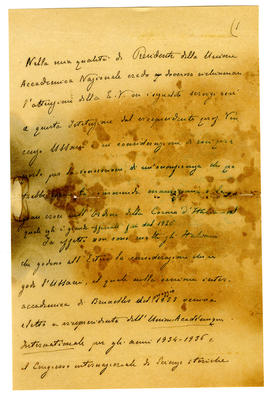 (1
Nella mia qualità di Presidente della Unione
Accademica Nazionale credo doveroso richiamare
l'attenzione della E. V. su i segnalati servigi resi
a questa Istituzione dal vicepresidente prof. Vin
cenzo Ussani in considerazione di con
per la concessione di un'onorificenza che
la commenda
nell'Ordine della Corona d'Italia
quale egli è grande ufficiale fin dal 1926
In effetti non sono molti gli Italiani
che godono all'Estero la considerazione che
gode l'Ussani, il quale nella riunione inter-
accademica di Bruxelles del 1933 veniva
eletto a vicepresidente dell'Union Académique
Internationale per gli anni 1934-1936 e
il Congresso internazionale di Scienze storiche